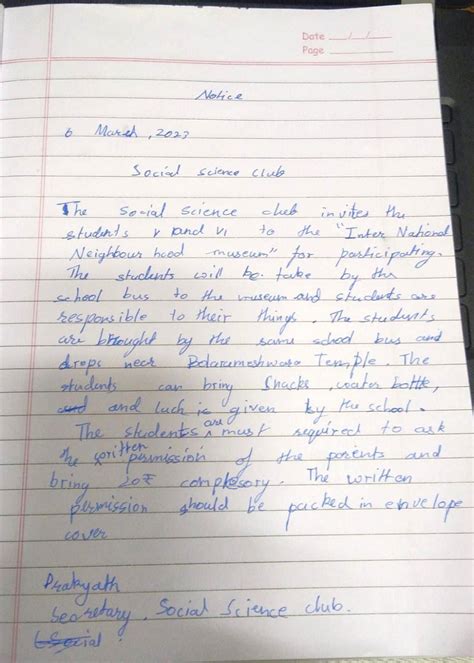 Date __/__/__
Page
Notice
6 March, 2023
Social science club
The social science club invites the
students V and VI to the "Inter National
Neighbour hood museum" for participating.
The students will be take by the
school bus to the museum and students are
responsible to their things. The students
are brought by the same school bus and
drops near Temple. The
students can bring Snacks, water bottle,
and luch is given by the school.
The students are must required to ask
the written permission of the parents and
bring 20₹ complesory. The written
permission should be packed in envelope
cover
Prakyath
Secretary, Social Science club.
Social